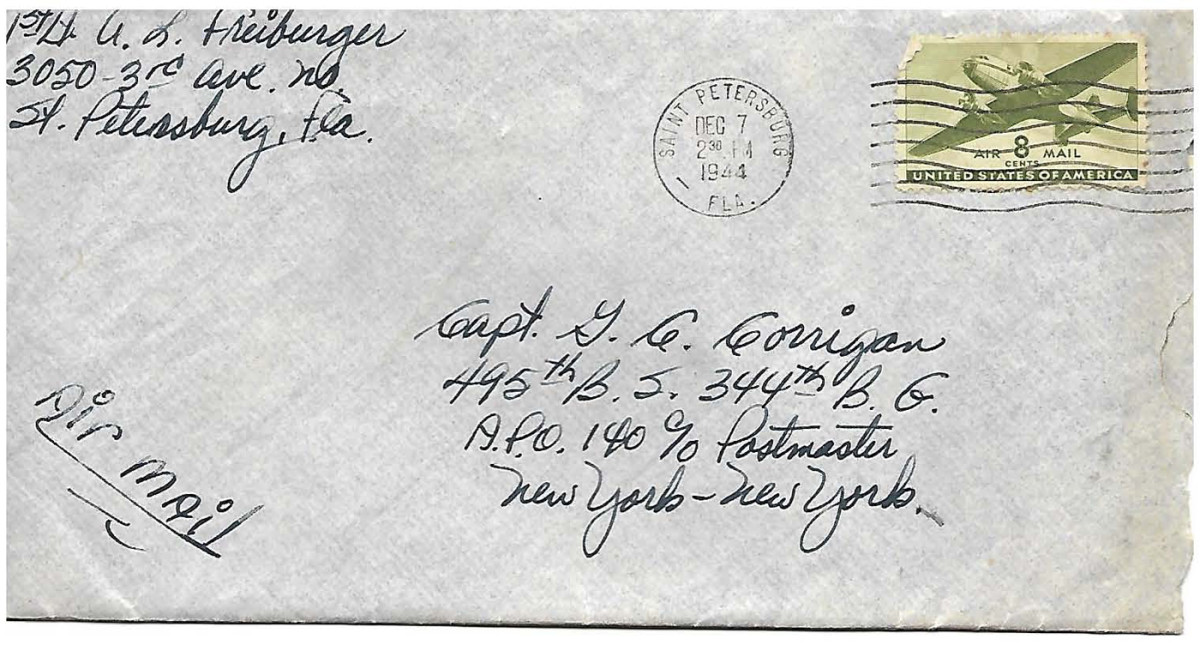 1st Lt. A. L. Freiburger
3050-3rd Ave. No.
St. Petersburg, Fla.
SAINT PETERSBURG
DEC 7
2 30 PM
1944
FLA.
AIR 8 MAIL
CENTS
UNITED STATES OF AMERICA
Capt. G. C. Corrigan
495th B. S. 344th B. G.
A.P.O. 140 c/o Postmaster
New York - New York.
Air Mail